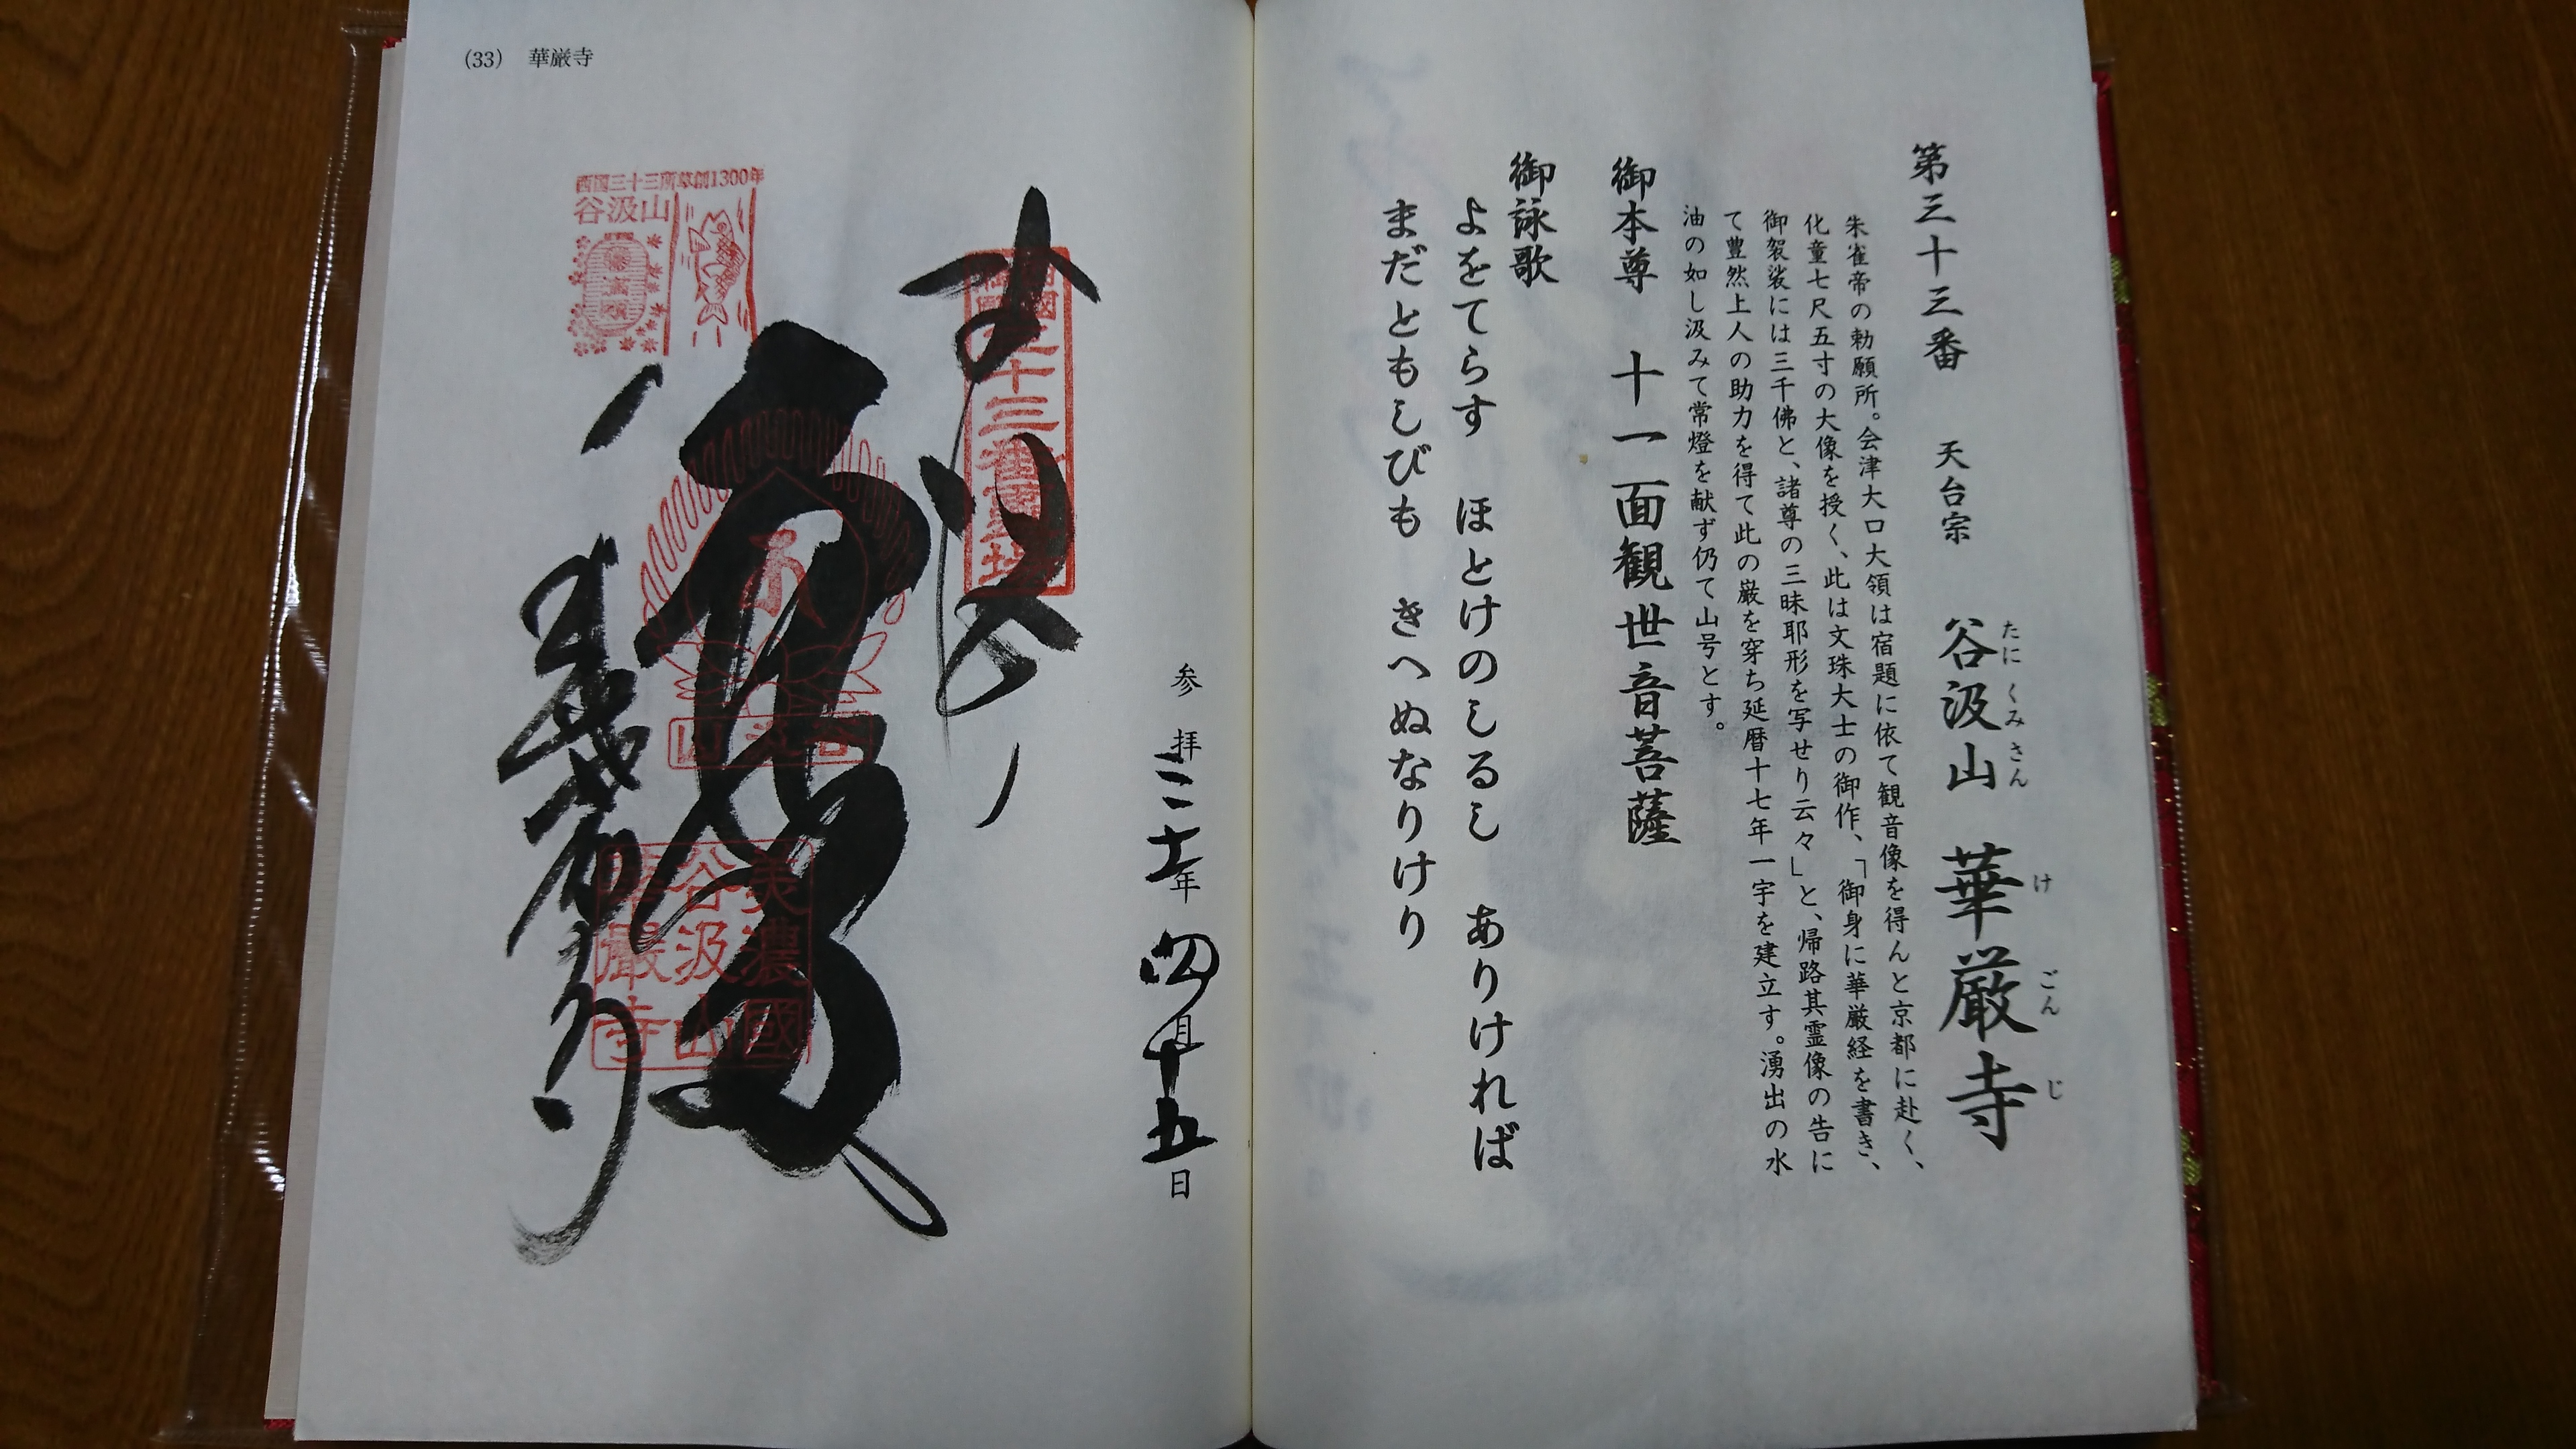 第三十三番 天台宗 谷汲山 華厳寺
たにくみさん けごんじ
朱雀帝の勅願所。会津大口大領は宿題に依て観音像を得んと京都に赴く、
化童七尺五寸の大像を授く、此は文珠大士の御作、「御身に華厳経を書き、
御袈裟には三千佛と、諸尊の三昧耶形を写せり云々」と、帰路其霊像の告に
て豊然上人の助力を得て此の巌を穿ち延暦十七年一宇を建立す。湧出の水
油の如し汲みて常燈を献ず仍て山号とす。
御本尊 十一面観世音菩薩
御詠歌
よをてらす ほとけのしるし ありければ
まだともしびも きへぬなりけり
(33) 華厳寺
参拝 三十年 四月 十五日
西国三十三所草創1300年
谷汲山
美濃國
谷汲山
華嚴寺